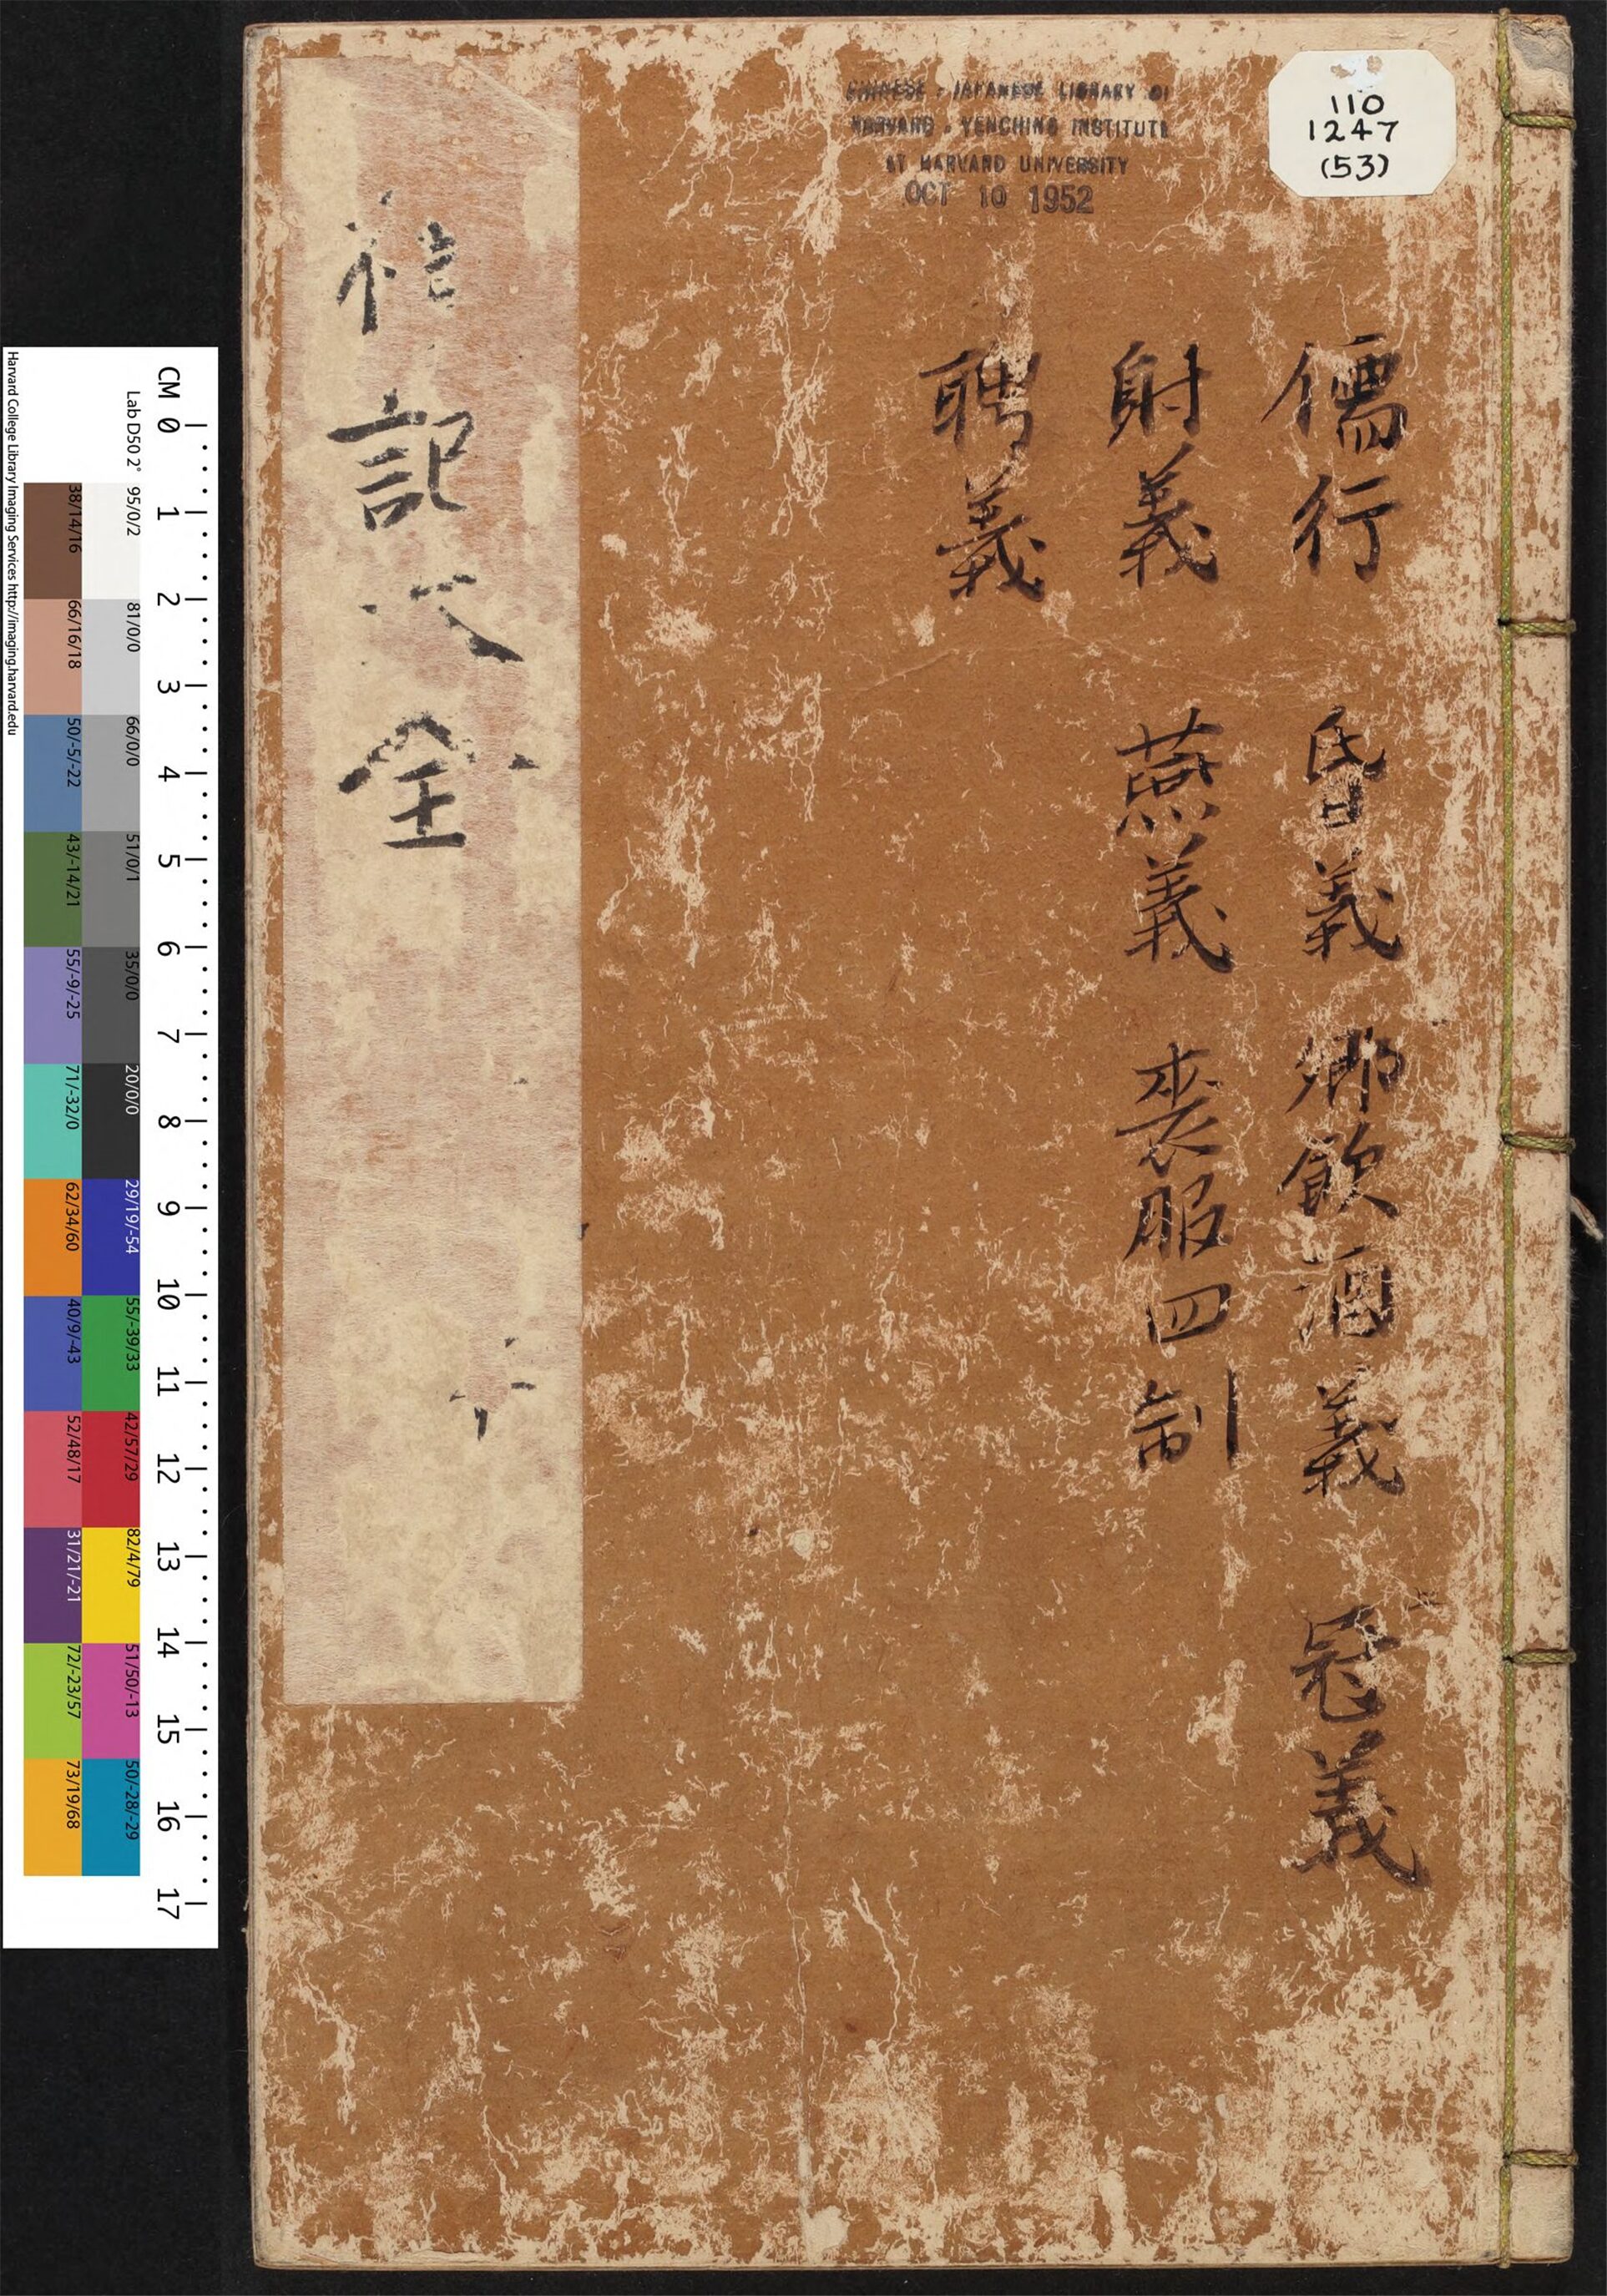 CHINESE - JAPANESE LIBRARY OF
HARVARD - YENCHING INSTITUTE
AT HARVARD UNIVERSITY
OCT 10 1952
110
1247
(53)
儒行 昏義 鄉飲酒義 冠義
射義 燕義 喪服四制
聘義
禮記大全
CM 0 1 2 3 4 5 6 7 8 9 10 11 12 13 14 15 16 17
Lab D50 2° 95/0/2 81/0/0 66/0/0 51/0/1 35/0/0 20/0/0 29/19/-54 55/-39/33 42/57/29 82/4/79 51/50/-13 50/-28/-29
38/14/16 66/16/18 50/-5/-22 43/-14/21 55/-9/-25 71/-32/0 62/34/60 40/9/-43 52/48/17 31/21/-21 72/-23/57 73/19/68
Harvard College Library Imaging Services http://imaging.harvard.edu